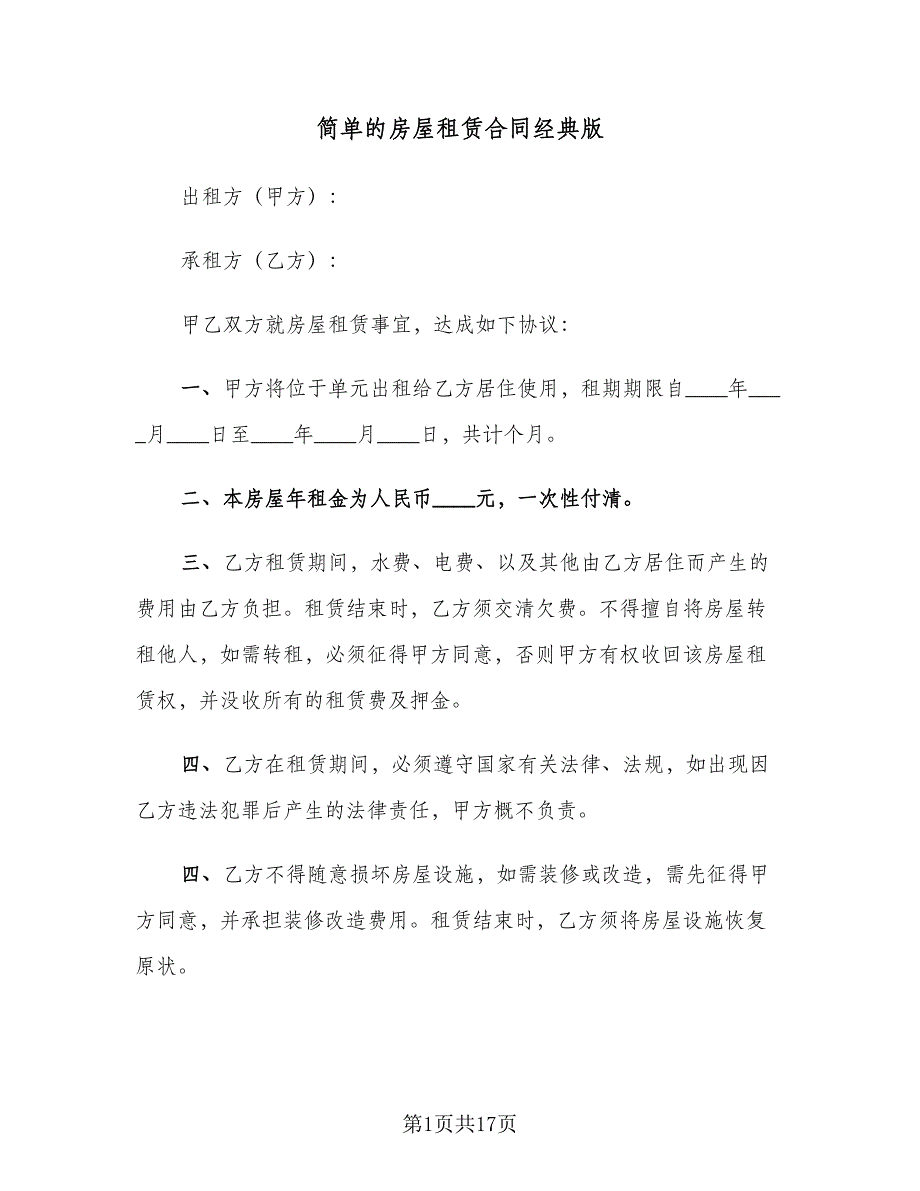 简单的房屋租赁合同经典版
出租方（甲方）：
承租方（乙方）：
甲乙双方就房屋租赁事宜，达成如下协议：
一、甲方将位于单元出租给乙方居住使用，租期期限自____年___
_月____日至____年____月____日，共计个月。
二、本房屋年租金为人民币____元，一次性付清。
三、乙方租赁期间，水费、电费、以及其他由乙方居住而产生的
费用由乙方负担。租赁结束时，乙方须交清欠费。不得擅自将房屋转
租他人，如需转租，必须征得甲方同意，否则甲方有权收回该房屋租
赁权，并没收所有的租赁费及押金。
四、乙方在租赁期间，必须遵守国家有关法律、法规，如出现因
乙方违法犯罪后产生的法律责任，甲方概不负责。
四、乙方不得随意损坏房屋设施，如需装修或改造，需先征得甲
方同意，并承担装修改造费用。租赁结束时，乙方须将房屋设施恢复
原状。
第1页共17页